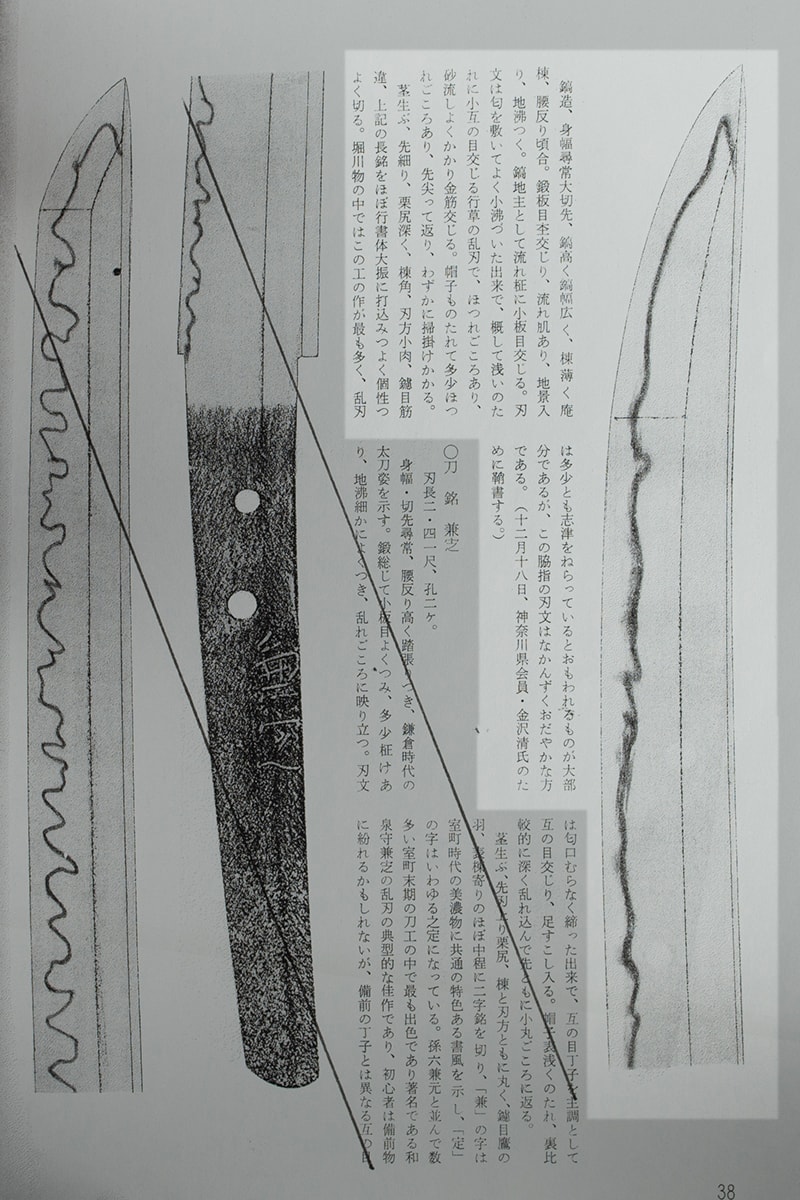 鎬造、身幅尋常大切先、鎬高く鎬幅広く、棟薄く庵
棟、腰反り頃合。鍛板目杢交じり、流れ肌あり、地景入
り、地沸つく。鎬地主として流れ柾に小板目交じる。刃
文は匂を敷いてよく小沸づいた出来で、概して浅いのた
れに小互の目交じる行草の乱刃で、ほつれごころあり、
砂流しよくかかり金筋交じる。帽子ものたれて多少ほつ
れごころあり、先尖って返り、わずかに掃掛けかかる。
茎生ぶ、先細り、栗尻深く、棟角、刃方小肉、鑢目筋
違、上記の長銘をほぼ行書体大振に打込みつよく個性つ
よく切る。堀川物の中ではこの工の作が最も多く、乱刃
は多少とも志津をねらっているとおもわれるものが大部
分であるが、この脇指の刃文はなかんずくおだやかな方
である。（十二月十八日、神奈川県会員・金沢清氏のた
めに鞘書する。）
〇刀 銘 兼㝎
刃長二・四一尺、孔二ヶ。
身幅・切先尋常、腰反り高く踏張りつき、鎌倉時代の
太刀姿を示す。鍛総じて小板目よくつみ、多少柾けあ
り、地沸細かによくつき、乱れごころに映り立つ。刃文
は匂口むらなく締った出来で、互の目丁子を主調として
互の目交じり、足すこし入る。帽子表浅くのたれ、裏比
較的に深く乱れ込んで先ともに小丸ごころに返る。
茎生ぶ、先刃上り栗尻、棟と刃方ともに丸く、鑢目鷹の
羽、表棟寄りのほぼ中程に二字銘を切り、「兼」の字は
室町時代の美濃物に共通の特色ある書風を示し、「定」
の字はいわゆる之定になっている。孫六兼元と並んで数
多い室町末期の刀工の中で最も出色であり著名である和
泉守兼㝎の乱刃の典型的な佳作であり、初心者は備前物
に紛れるかもしれないが、備前の丁子とは異なる互の目
兼㝎
38